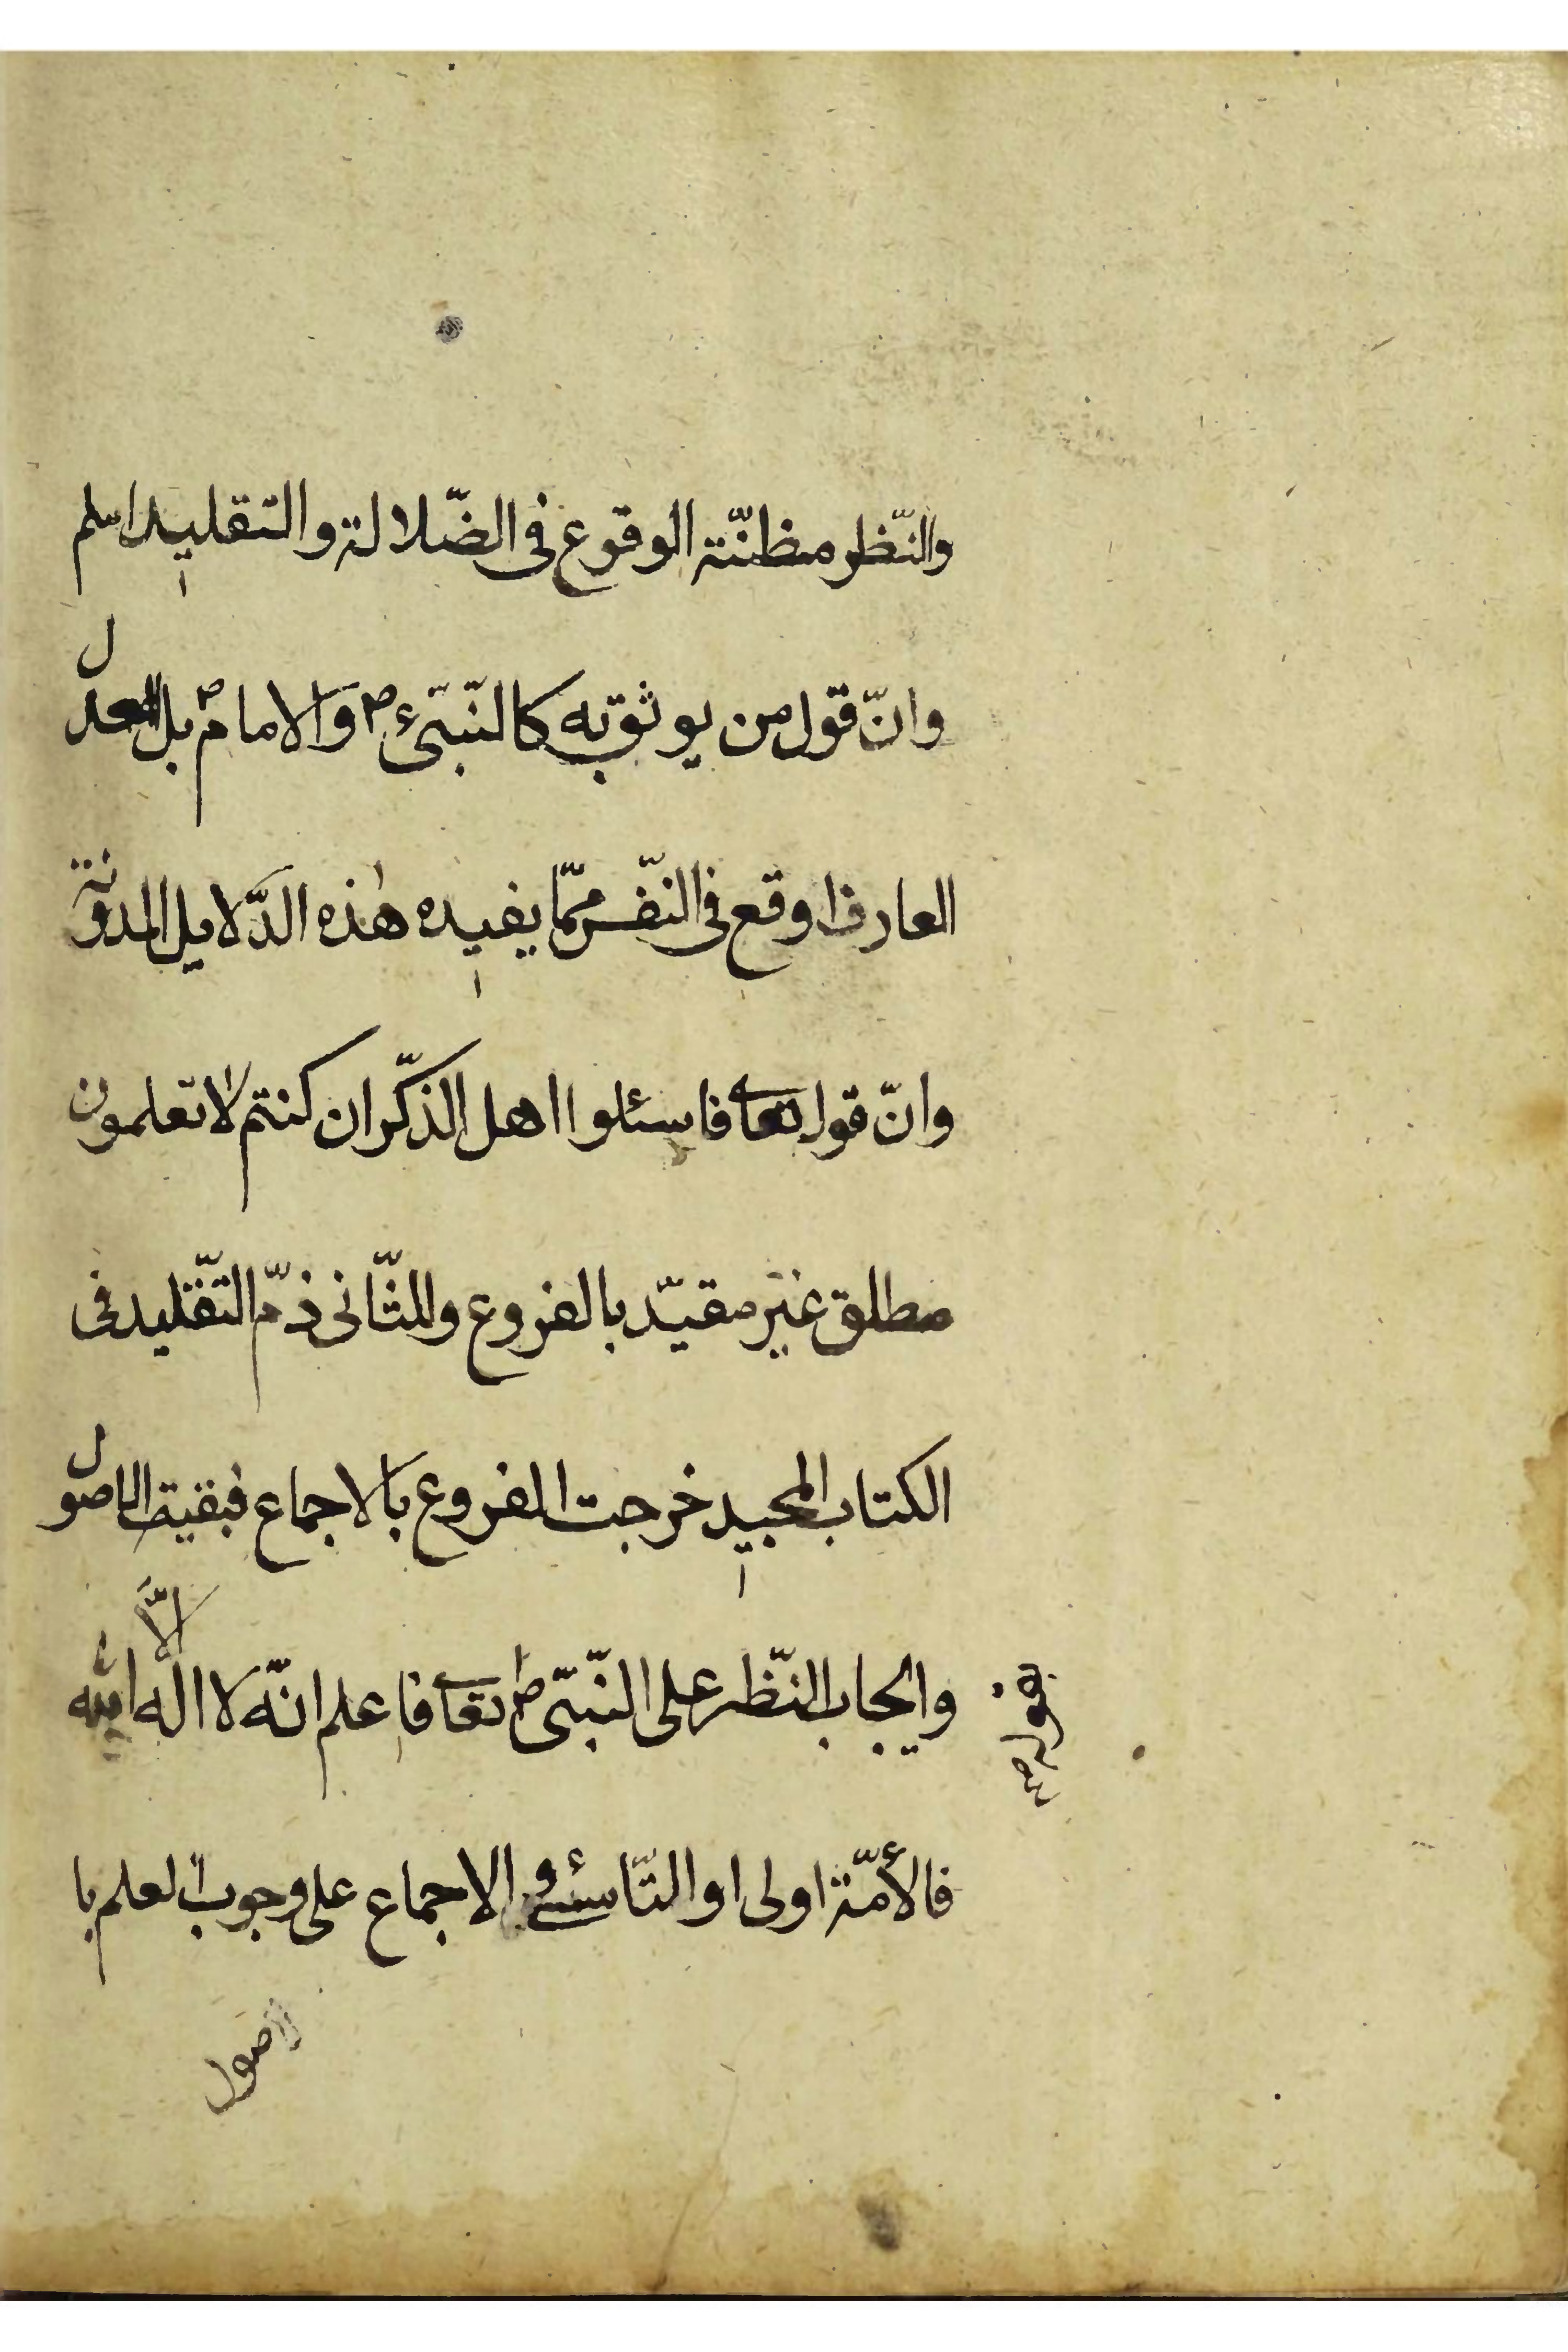 والنّظر مظنّة الوقوع فى الضّلالة والتقليد اسلم
وانّ قول من يوثق به كالنّبىّء ص والامام بل العدل
العارف اوقع فى النّفس ممّا يفيده هٰذه الدّلايل المدونة
وانّ قوله تعا فاسئلوا اهل الذّكر ان كنتم لا تعلمون
مطلق غير مقيّد بالفروع وللثّانى ذمّ التّقليد فى
الكتاب المجيد خرجت الفروع بالاجماع فبقيت الاصول
وايجاب النّظر على النّبىّ ص تعا فاعلم انّه لا اله الّا الله
بقوله صح
فالأمّة اولى او التّاسّى و الاجماع على وجوب العلم با
لاصول